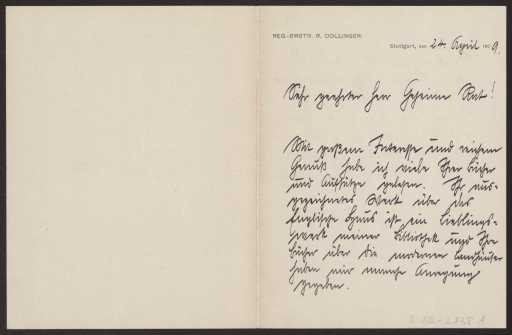 REG.-BMSTR. R. DOLLINGER
Stuttgart, den 24. April 1909.
Sehr geehrter Herr Geheime Rat!
Mit großem Interesse und reichem
Genuß habe ich viele Ihrer Bücher
und Aufsätze gelesen. Ihr aus-
gezeichnetes Werk über das
Englische Haus ist ein Lieblings-
werk meiner Bibliothek und Ihre
Bücher über die modernen Landhäuser
haben mir manche Anregung
gegeben.